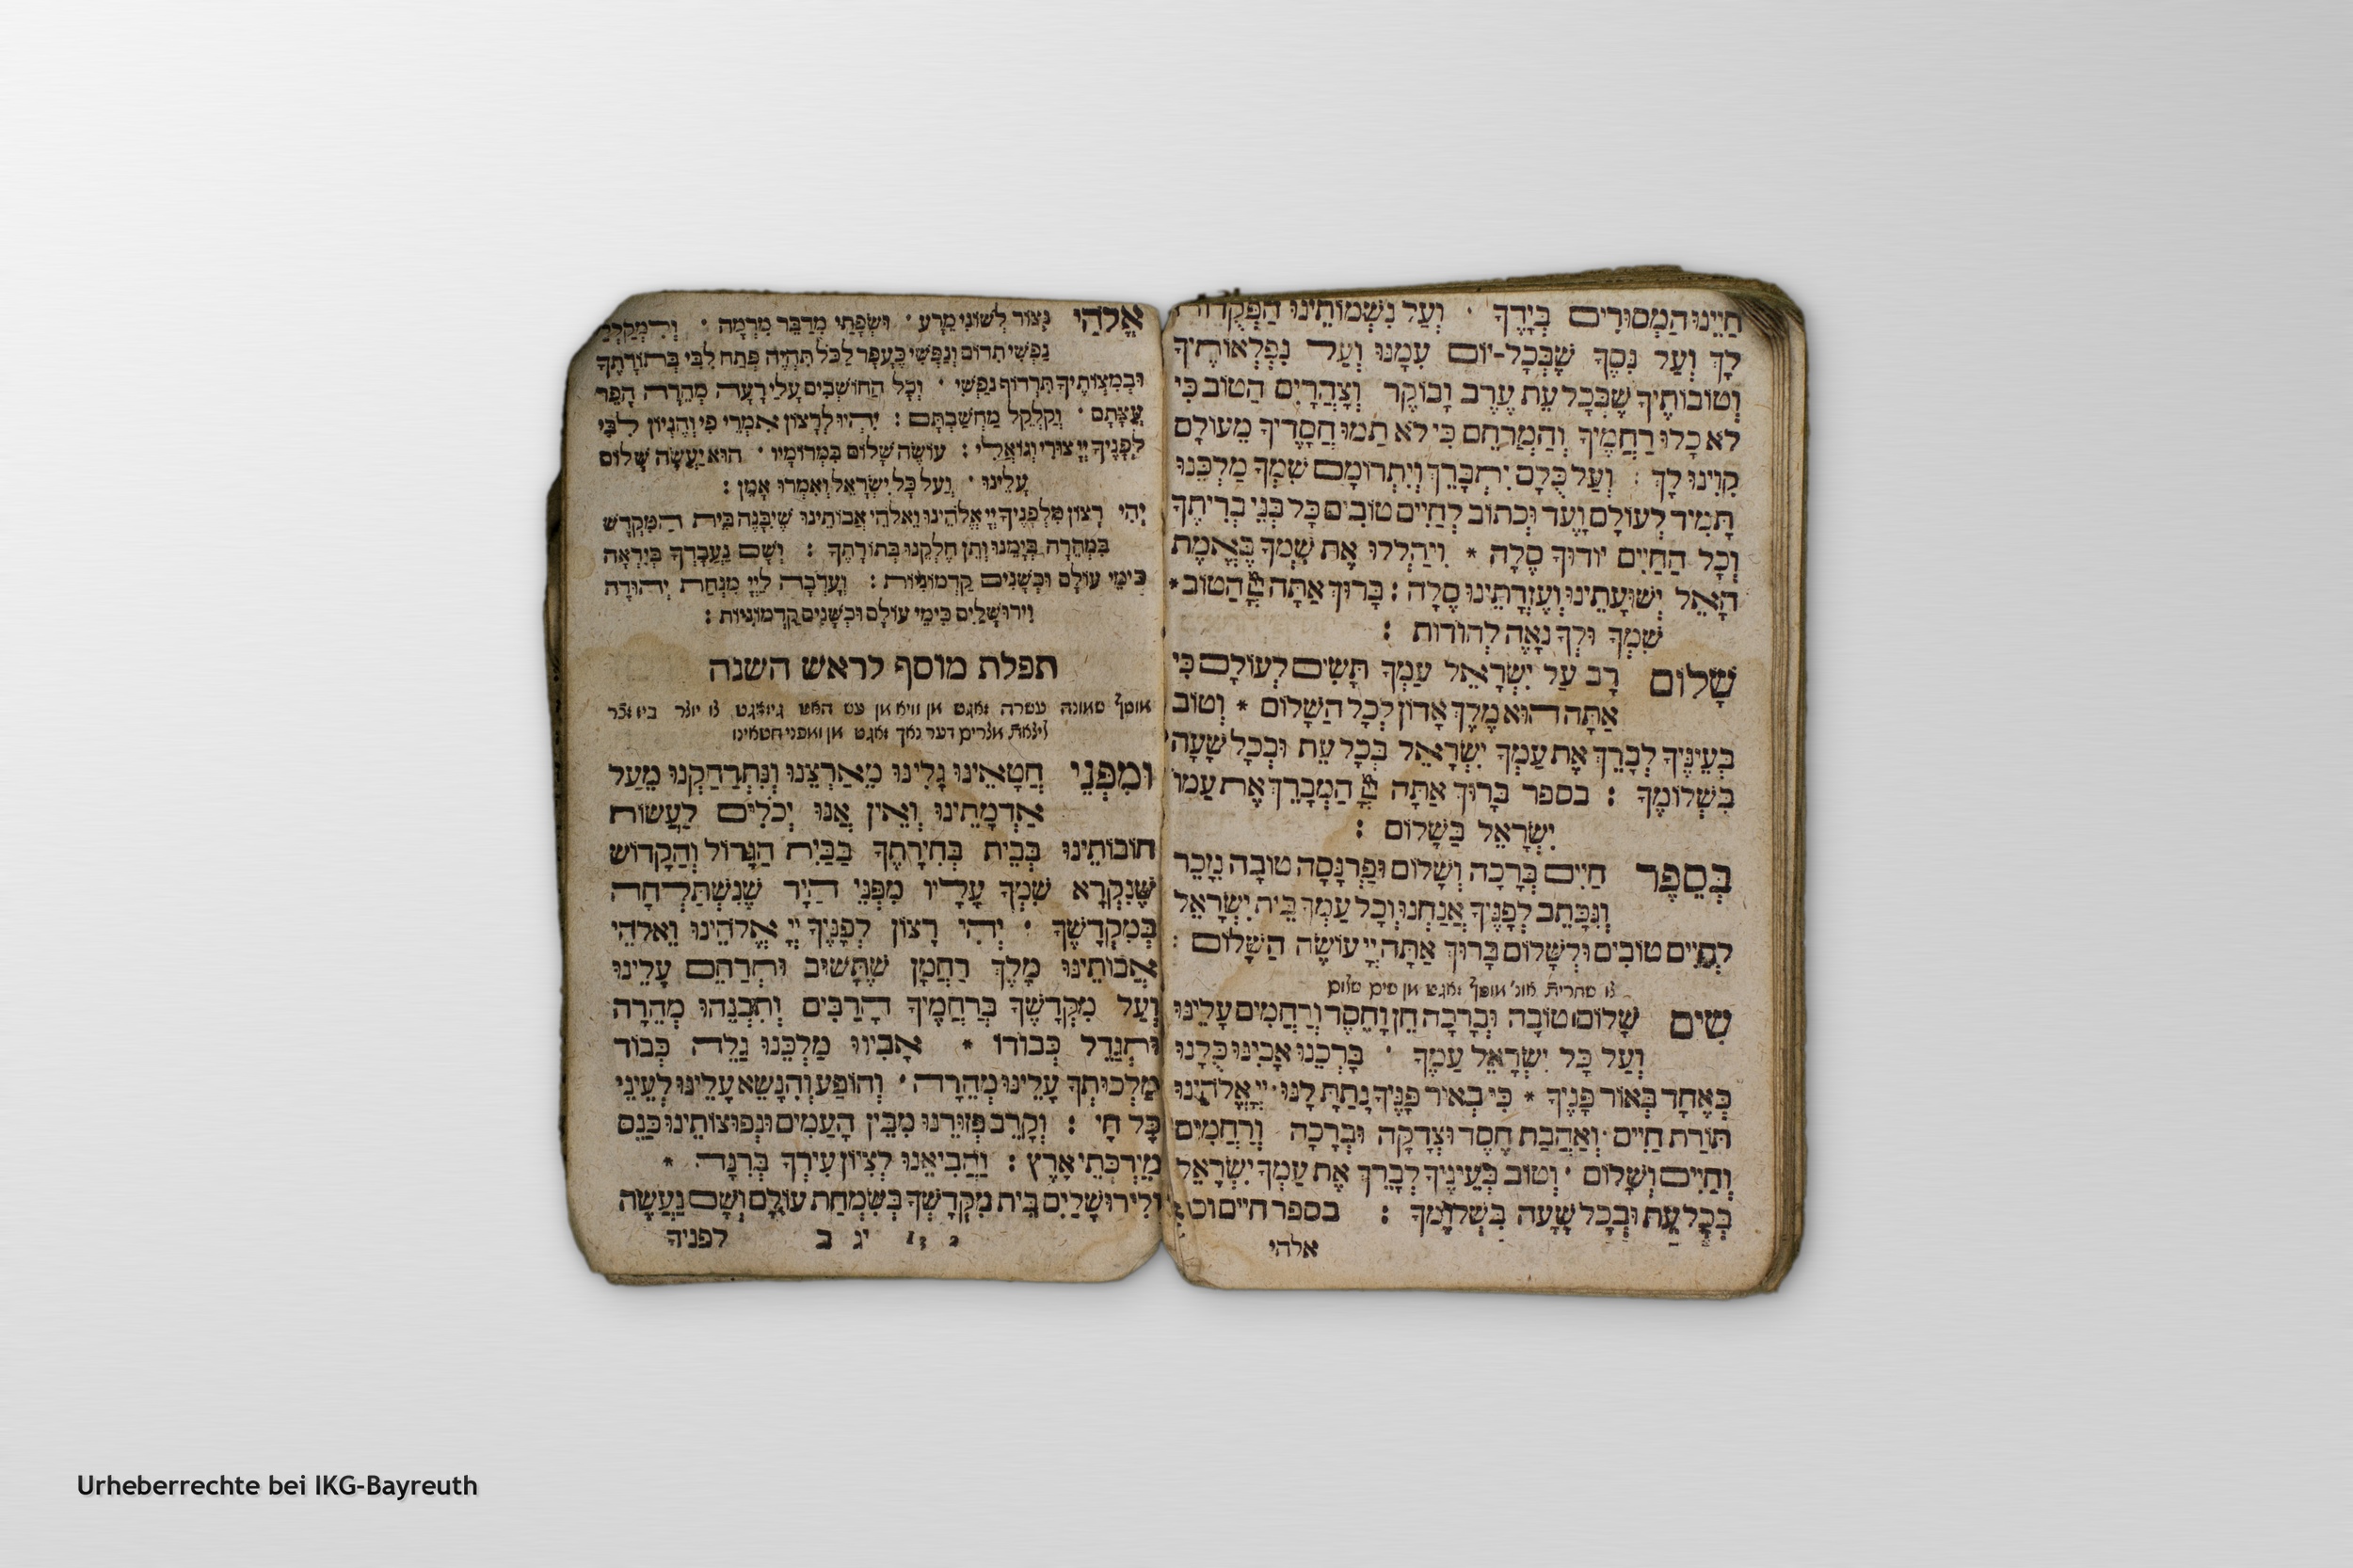 חַיֵּינוּ הַמְּסוּרִים בְּיָדֶךָ · וְעַל נִשְׁמוֹתֵינוּ הַפְּקֻדוֹת
לָךְ וְעַל נִסֶּךָ שֶׁבְּכָל־יוֹם עִמָּנוּ וְעַל נִפְלְאוֹתֶיךָ
וְטוֹבוֹתֶיךָ שֶׁבְּכָל עֵת עֶרֶב וָבוֹקֶר וְצָהֳרָיִם הַטוֹב כִּי
לֹא כָלוּ רַחֲמֶיךָ וְהַמְרַחֵם כִּי לֹא תַמּוּ חֲסָדֶיךָ מֵעוֹלָם
קִוִּינוּ לָךְ : וְעַל כֻּלָּם יִתְבָּרֵךְ וְיִתְרוֹמָם שִׁמְךָ מַלְכֵּנוּ
תָּמִיד לְעוֹלָם וָעֶד וּכְתוֹב לְחַיִּים טוֹבִים כָּל בְּנֵי בְרִיתֶךָ
וְכָל הַחַיִּים יוֹדוּךָ סֶּלָה * וִיהַלְלוּ אֶת שִׁמְךָ בֶּאֱמֶת
הָאֵל יְשׁוּעָתֵינוּ וְעֶזְרָתֵינוּ סֶלָה : בָּרוּךְ אַתָּה יְיָ הַטוֹב *
שִׁמְךָ וּלְךָ נָאֶה לְהוֹדוֹת :
שָׁלוֹם רָב עַל יִשְׂרָאֵל עַמְּךָ תָּשִׂים לְעוֹלָם כִּי
אַתָּה הוּא מֶלֶךְ אָדוֹן לְכָל הַשָּׁלוֹם * וְטוֹב
בְּעֵינֶיךָ לְבָרֵךְ אֶת עַמְּךָ יִשְׂרָאֵל בְּכָל עֵת וּבְכָל שָׁעָה
בִּשְׁלוֹמֶךָ : בספר בָּרוּךְ אַתָּה יְיָ הַמְבָרֵךְ אֶת עַמּוֹ
יִשְׂרָאֵל בַּשָּׁלוֹם :
בְּסֵפֶר חַיִּים בְּרָכָה וְשָׁלוֹם וּפַרְנָסָה טוֹבָה נִזָּכֵר
וְנִכָּתֵב לְפָנֶיךָ אֲנַחְנוּ וְכָל עַמְּךָ בֵּית יִשְׂרָאֵל
לְחַיִּים טוֹבִים וּלְשָׁלוֹם בָּרוּךְ אַתָּה יְיָ עוֹשֶׂה הַשָּׁלוֹם :
צו שחרית אונ' מוסף זאגט מן שים שלום
שִׂים שָׁלוֹם טוֹבָה וּבְרָכָה חֵן וָחֶסֶד וְרַחֲמִים עָלֵינוּ
וְעַל כָּל יִשְׂרָאֵל עַמֶּךָ · בָּרְכֵנוּ אָבִינוּ כֻּלָּנוּ
כְּאֶחָד בְּאוֹר פָּנֶיךָ * כִּי בְאוֹר פָּנֶיךָ נָתַתָּ לָּנוּ · יְיָ אֱלֹהֵינוּ
תּוֹרַת חַיִּים · וְאַהֲבַת חֶסֶד וּצְדָקָה וּבְרָכָה וְרַחֲמִים
וְחַיִּים וְשָׁלוֹם · וְטוֹב בְּעֵינֶיךָ לְבָרֵךְ אֶת עַמְּךָ יִשְׂרָאֵל
בְּכָל עֵת וּבְכָל שָׁעָה בִּשְׁלוֹמֶךָ : בספר חיים וכו'
אלהי
אֱלֹהַי נְצוֹר לְשׁוֹנִי מֵרָע · וּשְׂפָתַי מִדַּבֵּר מִרְמָה · וְלִמְקַלְלַי
נַפְשִׁי תִדּוֹם וְנַפְשִׁי כֶּעָפָר לַכֹּל תִּהְיֶה פְּתַח לִבִּי בְּתוֹרָתֶךָ
וּבְמִצְוֹתֶיךָ תִּרְדּוֹף נַפְשִׁי · וְכָל הַחוֹשְׁבִים עָלַי רָעָה מְהֵרָה הָפֵר
עֲצָתָם · וְקַלְקֵל מַחְשַׁבְתָּם : יִהְיוּ לְרָצוֹן אִמְרֵי פִי וְהֶגְיוֹן לִבִּי
לְפָנֶיךָ יְיָ צוּרִי וְגוֹאֲלִי : עוֹשֶׂה שָׁלוֹם בִּמְרוֹמָיו · הוּא יַעֲשֶׂה שָׁלוֹם
עָלֵינוּ · וְעַל כָּל יִשְׂרָאֵל וְאִמְרוּ אָמֵן :
יְהִי רָצוֹן מִלְּפָנֶיךָ יְיָ אֱלֹהֵינוּ וֵאלֹהֵי אֲבוֹתֵינוּ שֶׁיִּבָּנֶה בֵּית הַמִּקְדָּשׁ
בִּמְהֵרָה בְיָמֵנוּ וְתֵן חֶלְקֵנוּ בְּתוֹרָתֶךָ : וְשָׁם נַעֲבָדְךָ בְּיִרְאָה
כִּימֵי עוֹלָם וּכְשָׁנִים קַדְמוֹנִיּוֹת : וְעָרְבָה לַיְיָ מִנְחַת יְהוּדָה
וִירוּשָׁלַיִם כִּימֵי עוֹלָם וּכְשָׁנִים קַדְמוֹנִיּוֹת :
תפלת מוסף לראש השנה
מוסף שמונה עשרה זאגט מן וויא מן עש האט גיזאגט צו יוצר ביז זכר
ליציאת מצרים דער נאך זאגט מן ומפני חטאינו
וּמִפְּנֵי חֲטָאֵינוּ גָּלִינוּ מֵאַרְצֵנוּ וְנִתְרַחַקְנוּ מֵעַל
אַדְמָתֵינוּ וְאֵין אֲנוּ יְכֹלִים לַעֲשׂוֹת
חוֹבוֹתֵינוּ בְּבֵית בְּחִירָתֶךָ בַּבַּיִת הַגָּדוֹל וְהַקָּדוֹשׁ
שֶׁנִּקְרָא שִׁמְךָ עָלָיו מִפְּנֵי הַיָּד שֶׁנִּשְׁתַּלְּחָה
בְּמִקְדָּשֶׁךָ · יְהִי רָצוֹן לְפָנֶיךָ יְיָ אֱלֹהֵינוּ וֵאלֹהֵי
אֲבוֹתֵינוּ מֶלֶךְ רַחֲמָן שֶׁתָּשׁוּב וּתְרַחֵם עָלֵינוּ
וְעַל מִקְדָּשְׁךָ בְּרַחֲמֶיךָ הָרַבִּים וְתִבְנֵהוּ מְהֵרָה
וּתְגַדֵּל כְּבוֹדוֹ * אָבִינוּ מַלְכֵּנוּ גַּלֵּה כְּבוֹד
מַלְכוּתְךָ עָלֵינוּ מְהֵרָה · וְהוֹפַע וְהִנָּשֵׂא עָלֵינוּ לְעֵינֵי
כָּל חָי : וְקָרֵב פְּזוּרֵנוּ מִבֵּין הָעַמִּים וּנְפוּצוֹתֵינוּ כַּנֵּס
מִיַּרְכְּתֵי אָרֶץ : וַהֲבִיאֵנוּ לְצִיּוֹן עִירְךָ בְּרִנָּה *
וְלִירוּשָׁלַיִם בֵּית מִקְדָּשְׁךָ בְּשִׂמְחַת עוֹלָם וְשָׁם נַעֲשֶׂה
יג ב לפניך
Urheberrechte bei IKG-Bayreuth